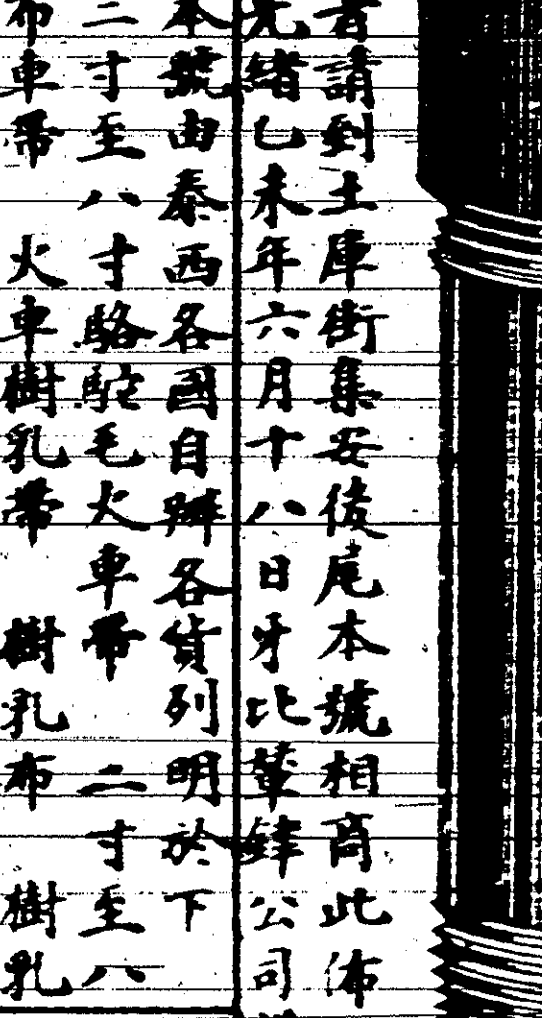 者請到土庫街集安後尾本號相商此佈
光緒乙未年六月十八日牙比輦鋛公司
本號由泰西各國自辦各貨列明於下
二寸至八寸駱駝毛火車帶 二寸至八
布車帶 火車樹乳帶 樹乳布 樹乳